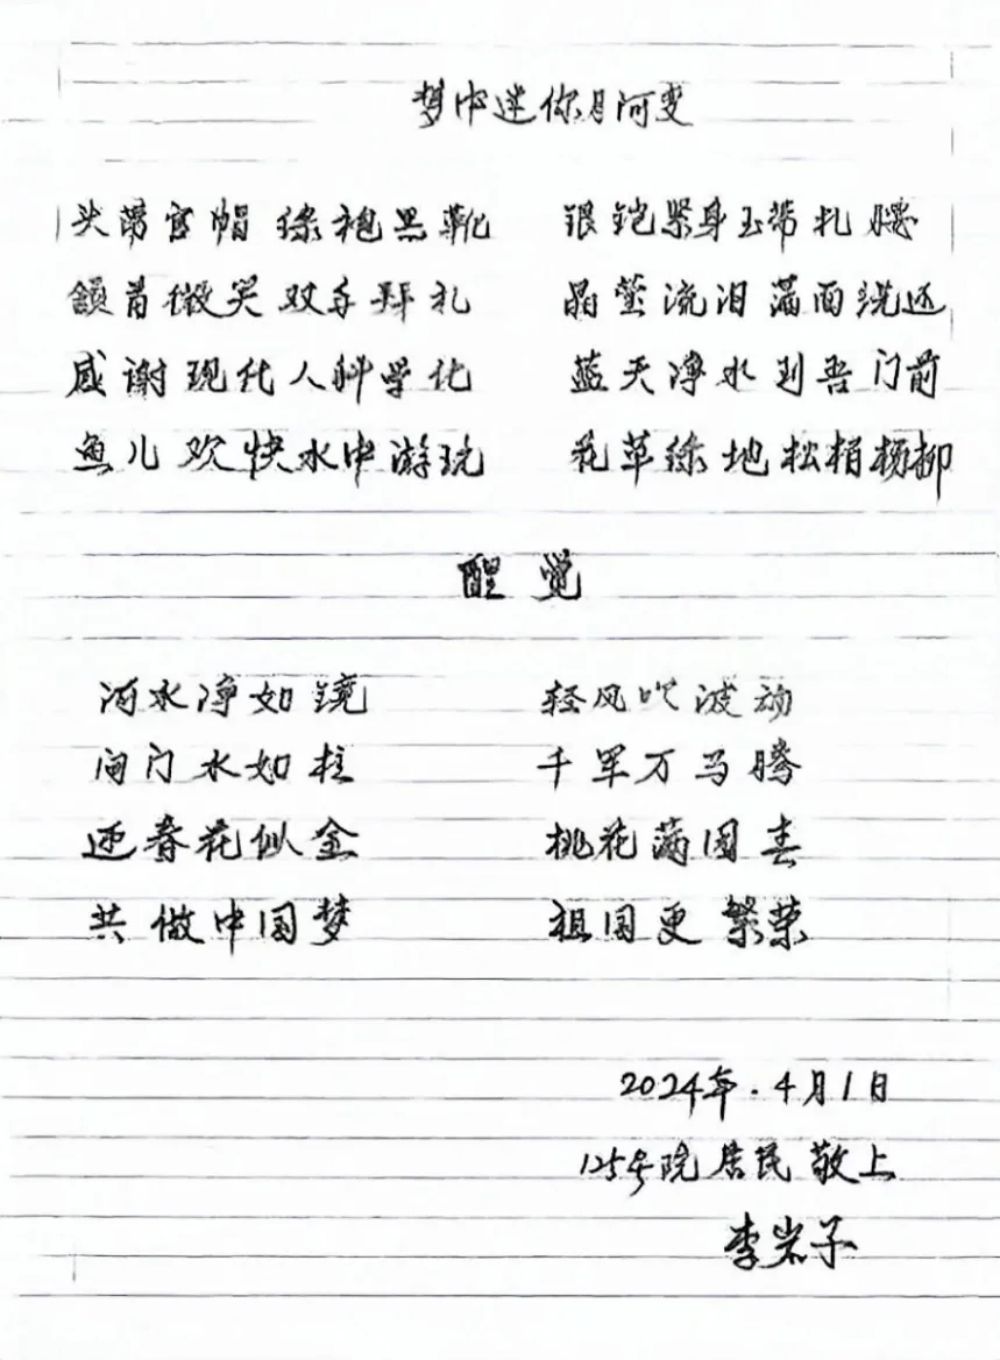 梦中迷你月河变
头带官帽绿袍黑靴 银铠紧身玉带扎腰
颔首微笑双手拜礼 晶莹流泪满面洗还
感谢现代人科学化 蓝天净水到吾门前
鱼儿欢快水中游玩 花草绿地松柏杨柳
醒觉
河水净如镜 轻风吹波动
闸门水如柱 千军万马腾
迎春花似金 桃花满园春
共做中国梦 祖国更繁荣
2024年.4月1日
125号院居民敬上
李岩子